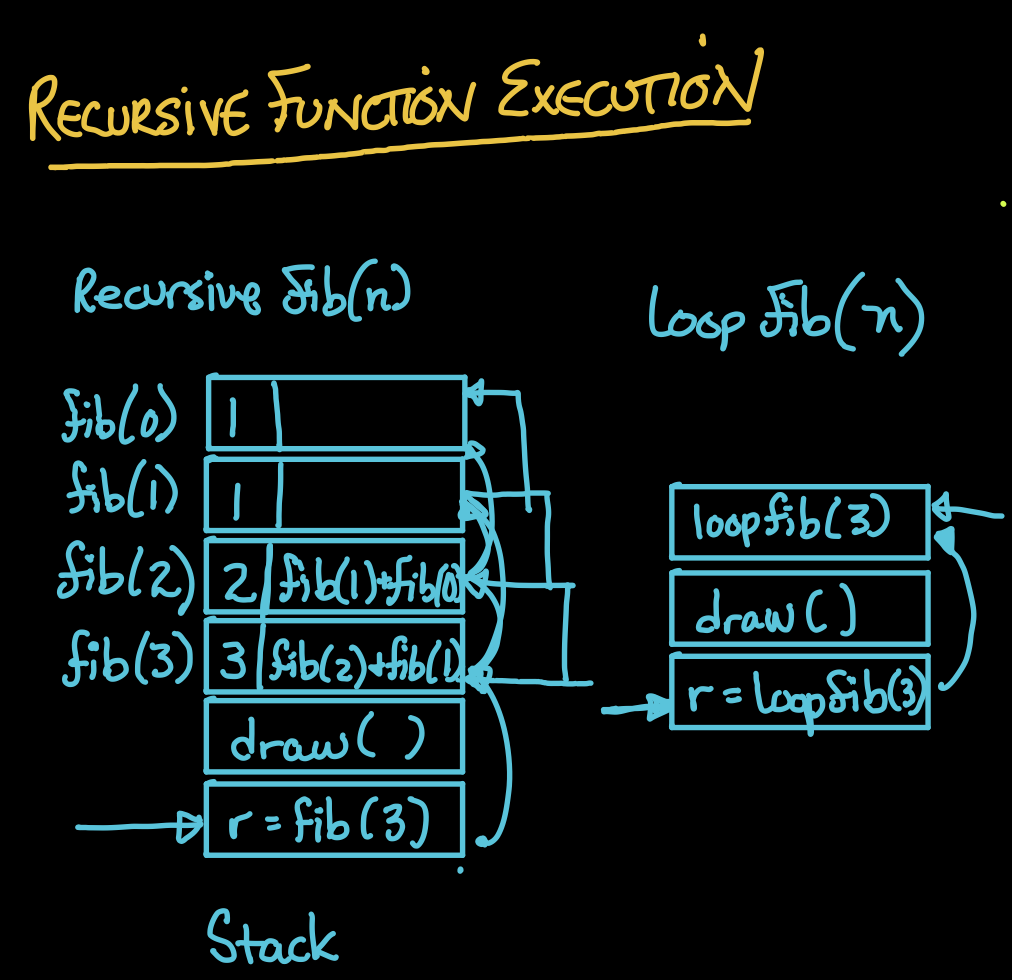 RECURSIVE FUNCTION EXECUTION
Recursive fib(n)
Loop fib(n)
fib(0) 1
fib(1) 1
fib(2) 2 fib(1)+fib(0)
fib(3) 3 fib(2)+fib(1)
draw( )
r = fib(3)
Stack
loopfib(3)
draw( )
r = loopfib(3)